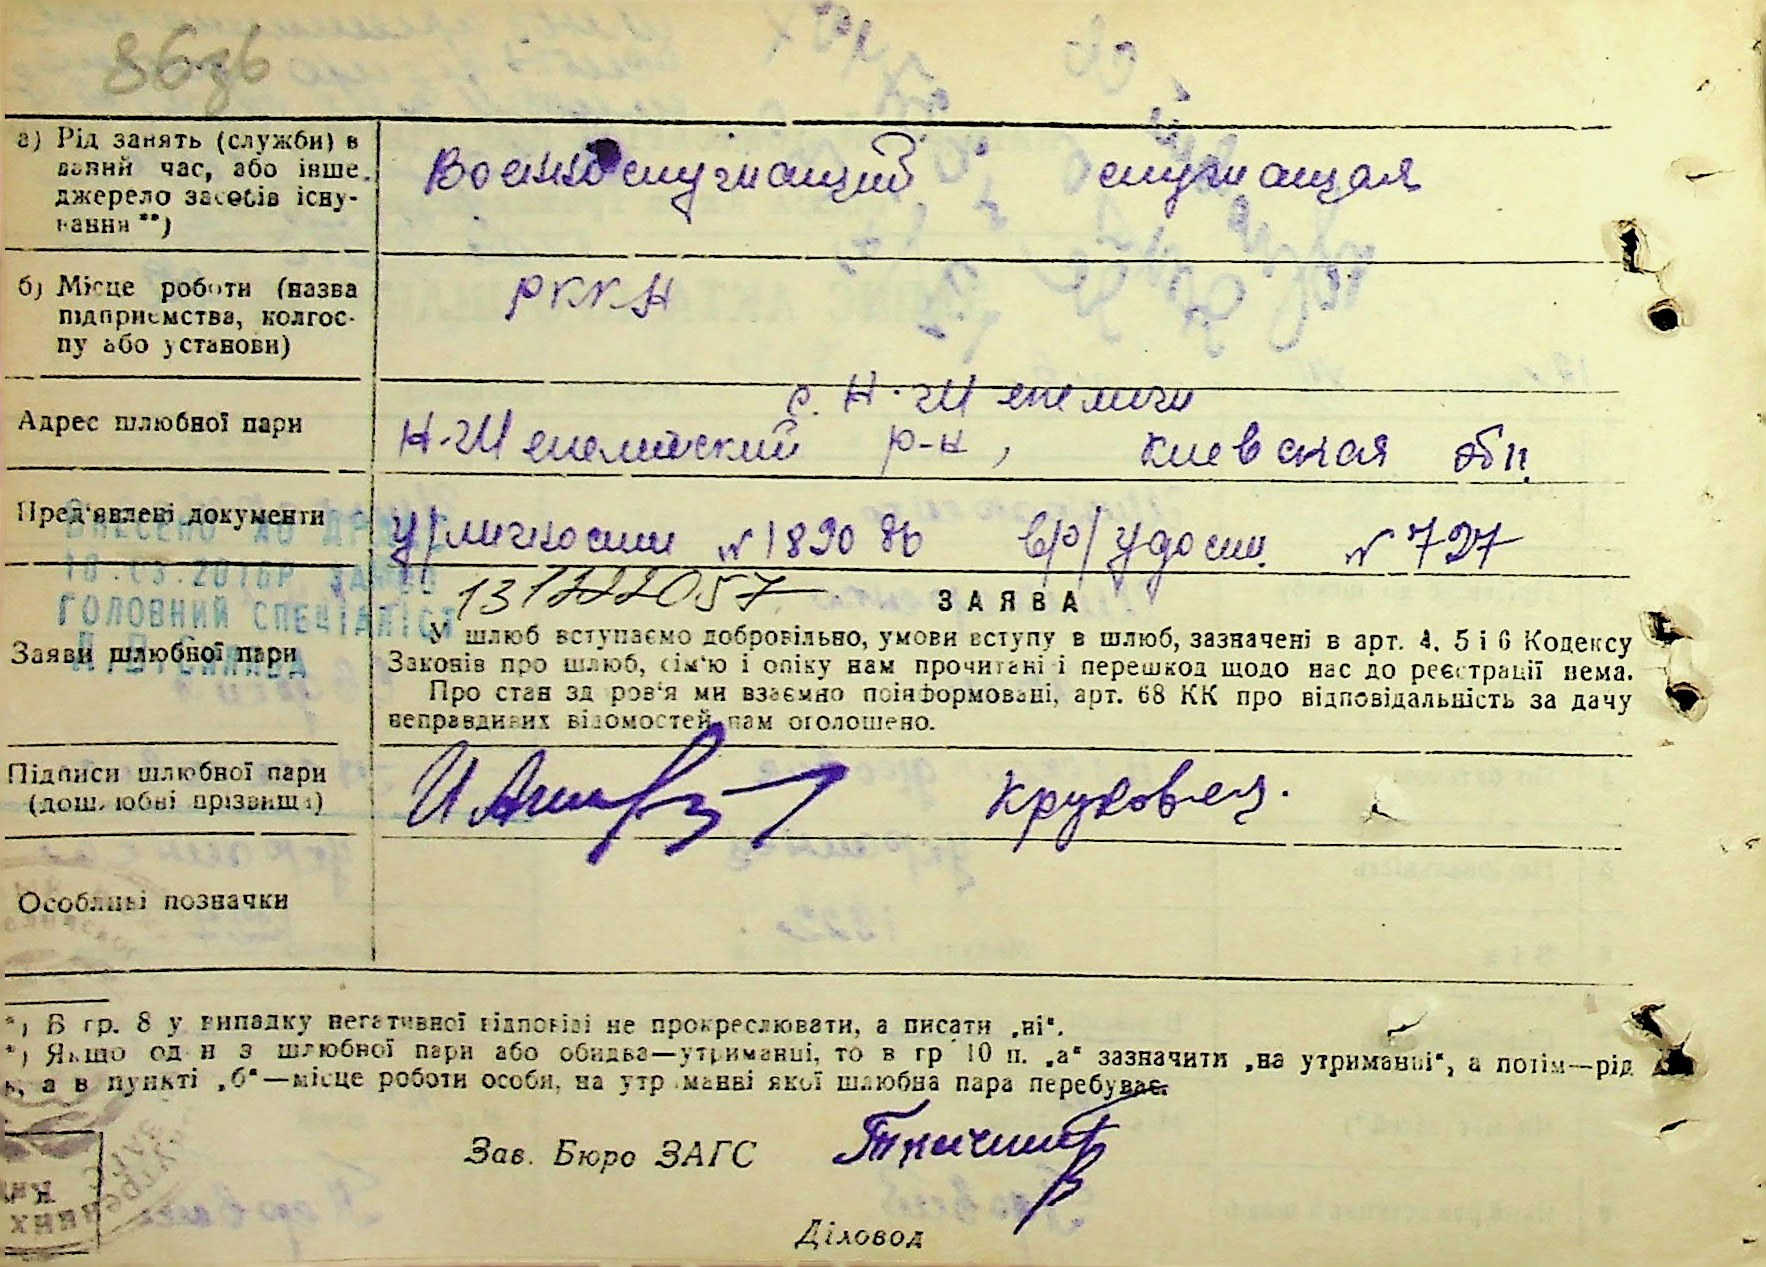 а) Рід занять (служби) в
даний час, або інше
джерело засобів існу-
вання **)
Военнослужащий служащая
б) Місце роботи (назва
підприємства, колгос-
пу або установи)
РККА
Адрес шлюбної пари
с. Н-Шепеличи
Н-Шепеличский р-н, Киевская обл.
Пред'явлені документи
у/личности № 189086 вр/удост. № 727
ВНЕСЕНО ДО ДРАЦС
18.03.2016Р
ГОЛОВНИЙ СПЕЦІАЛІСТ
Заяви шлюбної пари
ЗАЯВА
У шлюб вступаємо добровільно, умови вступу в шлюб, зазначені в арт. 4, 5 і 6 Кодексу
Законів про шлюб, сім'ю і опіку нам прочитані і перешкод щодо нас до реєстрації нема.
Про стан здоров'я ми взаємно поінформовані, арт. 68 КК про відповідальність за дачу
неправдивих відомостей нам оголошено.
Підписи шлюбної пари
(дошлюбні прізвища)
Круковец.
Особливі позначки
*) В гр. 8 у випадку негативної відповіді не прокреслювати, а писати „ні“.
*) Якщо один з шлюбної пари або обидва—утриманці, то в гр 10 п. „а“ зазначити „на утриманні“, а потім—рід
а в пункті „б“—місце роботи особи, на утриманні якої шлюбна пара перебуває.
Зав. Бюро ЗАГС
Діловод